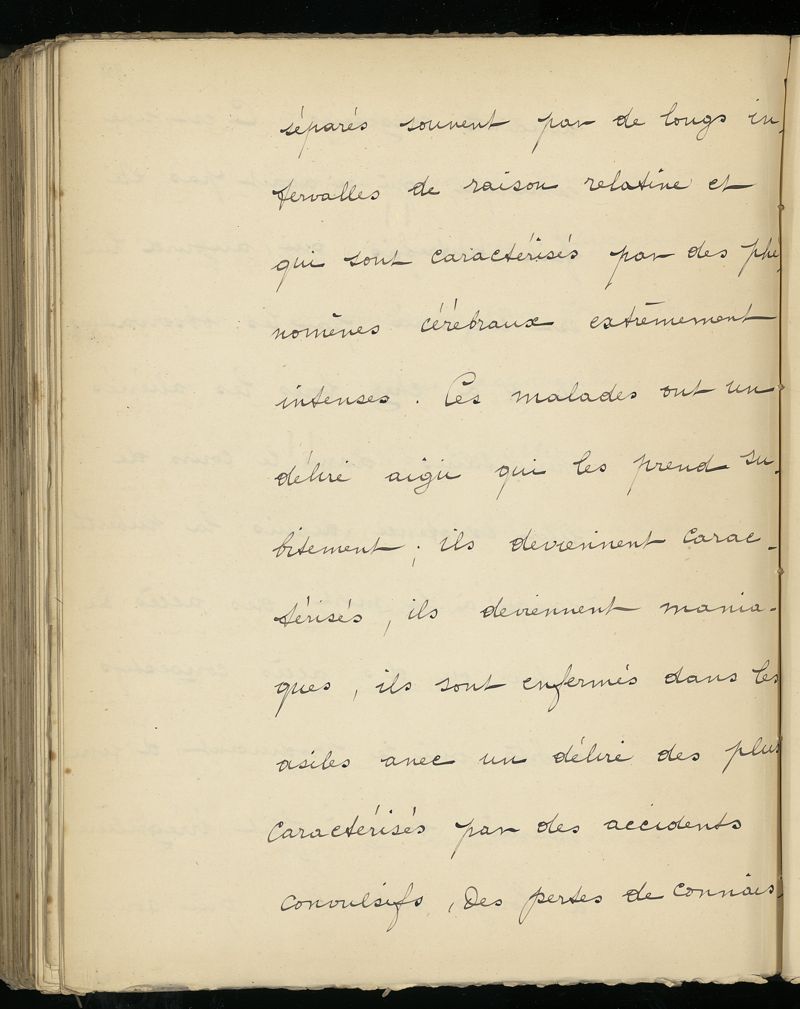 séparés souvent par de longs in-
tervalles de raison relative et
qui sont caractérisés par des phé-
nomènes cérébraux extrêmement
intenses. Ces malades ont un
délire aigu qui les prend su-
bitement ; ils deviennent carac-
térisés, ils deviennent mania-
ques, ils sont enfermés dans les
asiles avec un délire des plus
caractérisés par des accidents
convulsifs, des pertes de connais-